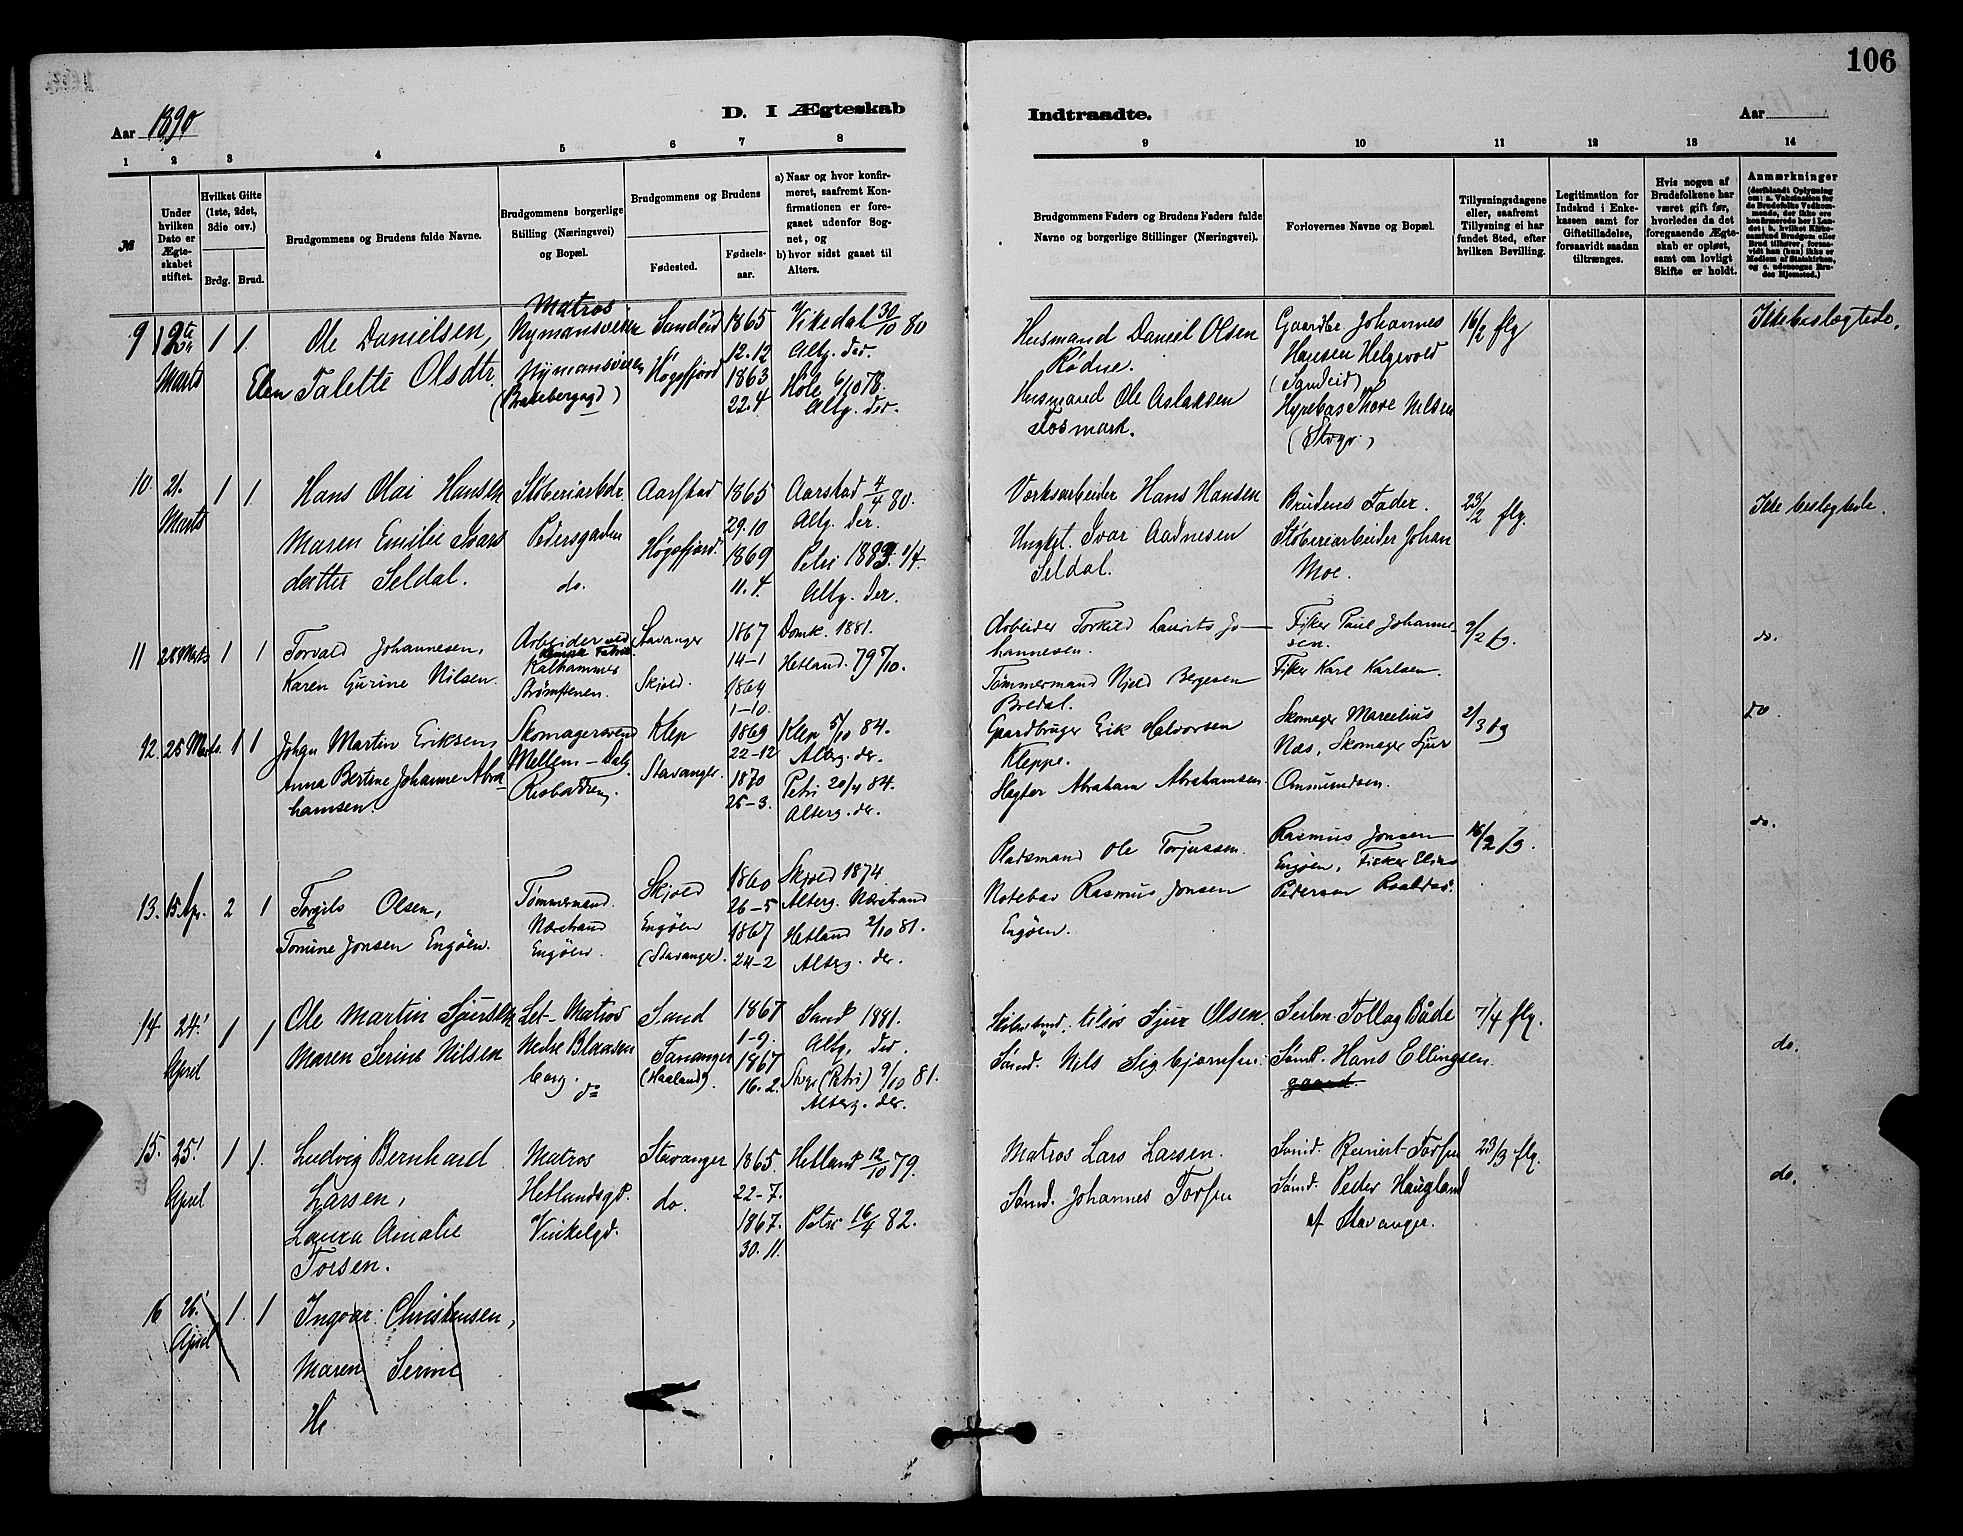 106
Aar 1890
D. I Ægteskab
Indtraadte.
Aar
1 2 3 4 5 6 7 8
9 10 11 12 13 14
№
Under hvilken Dato er Ægteskabet stiftet.
Hvilket Gifte (1ste, 2det, 3die osv.)
Brdg. Brud.
Brudgommens og Brudens fulde Navne.
Brudgommens borgerlige Stilling (Næringsvei) og Bopæl.
Brudgommens og Brudens
Fødested.
Fødselsaar.
a) Naar og hvor konfirmeret, saafremt Konfirmationen er foregaaet udenfor Sognet, og
b) hvor sidst gaaet til Alters.
Brudgommens Faders og Brudens Faders fulde Navne og borgerlige Stillinger (Næringsvei).
Forlovernes Navne og Bopæl.
Tillysningsdagene eller, saafremt Tillysning ei har fundet Sted, efter hvilken Bevilling.
Legitimation for Indskud i Enkekassen samt for Giftetilladelse, forsaavidt saadan tiltrænges.
Hvis nogen af Brudefolkene har været gift før, hvorledes da det foregaaende Ægteskab er opløst, samt om lovligt Skifte er holdt.
Anmærkninger
9 12te Marts 1 1.
Ole Danielsen,
Elen Talette Olsdtr.
Matros
Nymansveien
Nymansveien
Sandeid
Høgsfjord
1865
12.12
1863
22.4
Vikedal 30/10 80
Altg. der.
Hole 6/10 78.
Altg. der.
Husmand Daniel Olsen
Rødne.
Husmand Ole Aslaksen
Fosmark.
Gaardbr Johannes
Hansen Helgevold
(Sandeid)
Thore Nilsen
(Stvgr.)
16/2 flg
Ikke beslægtede.
10. 21. Marts 1 1.
Hans Olai Hansen
Maren Emilie Ivars
datter Seldal.
Støberiarbdr.
Pedersgaden
do.
Aarstad
Høgsfjord.
1865
29.10
1869
11.4.
Aarstad 4/4 80.
Altg. der.
Petri 1883
Altg. der.
Værksarbeider Hans Hansen
Ungkl. Ivar Aadnesen
Seldal.
Brudens Fader.
Støberiarbeider Johan
Moe.
23/2 flg.
Ikke beslægtede.
11 28 Marts 1 1
Torvald Johannesen,
Karen Gurine Nilsen.
Arbeider ved
Kalhammer
Strømstenen.
Stavanger
Skjold.
1867
14-1
1864
1-10.
Domk. 1881.
Hetland. 79 5/10.
Arbeider Torkild Laurits Jo-
hannesen.
Tømmermand Njeld Bergesen
Bredal.
Fisker Paul Johanne-
sen.
Fisker Karl Karlsen.
9/2 fg.
do.
12. 28 Marts. 1 1
Johan Martin Eriksen,
Anna Bertine Johanne Abra-
hamsen.
Skomagersvend
Mellem-Dalg.
Risbakken,
Klep
Stavanger.
1869
22-12
1870
25-3.
Klep 5/10 84.
Alterg. der.
Petri 20/4 84.
Alterg. der.
Gaardbruger Erik Halvorsen
Kleppe.
Slagter Abraham Abrahamsen.
Skomager Marcelius
Næs, Skomager Sjur
Ommundsen.
2/3 fg
do.
13. 15 Apr. 2 1
Torgils Olsen,
Tomine Jonsen Engøen.
Tømmermand.
Nærstrand
Engøen.
Skjold
Engøen
(Stavanger).
1860
26-5
1867
24-2
Skjold 1874
Alterg. Nærstrand
Hetland 2/10 81.
Alterg. der.
Pladsmand Ole Torjussen.
Notebas Rasmus Jonsen
Engøen.
Rasmus Jonsen
Engøen, Fisker Elias
Pedersen Roaldsø.
16/2 fg.
do.
14 24. April 1 1
Ole Martin Sjursen
Maren Serine Nilsen
Let-Matros
Nedre Blaasen
borg. do
Sand
Tananger
(Haaland).
1867
1-9.
1867
16.2.
Sand 1881.
Altg. der.
Stvgr (Petri) 9/10 81.
Alterg. der.
Sjur Olsen.
Sømd. Nils Sigbjørnsen.
Tollag Både
Sømd. Hans Ellingsen.
7/4 flg.
do.
15. 25. April 1 1.
Ludvig Bernhard
Larsen,
Laura Amalie
Torsen.
Matros
Hetlandsgd.
Vinkelgd.
Stavanger
do.
1865.
22-7.
1867.
30.11.
Hetland 12/10 79.
Petri 16/4 82.
Matros Lars Larsen.
Sømd. Johannes Torsen
Sømd. Reinert Torsen
Sømd. Peder Haugland
af Stavanger.
23/3 flg.
do.
16 26. April 1. 1
Ingvar Christensen,
Maren Serine
He